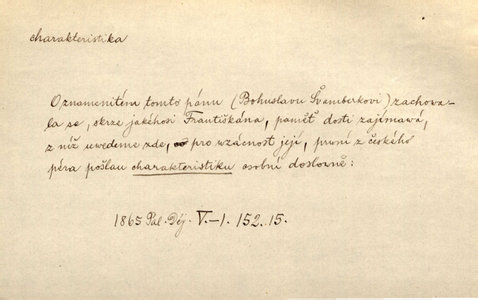 charakteristika
O znamenitém tomto pánu (Bohuslavu Švamberkovi) zachowa-
la se, skrze jakéhosi Františkána, paměť dosti zajímawá,
z níž uwedeme zde, pro wzácnost její, prwní z českého
péra pošlau charakteristiku osobní doslowně:
1865 Pal. Děj. V.-1. 152.15.